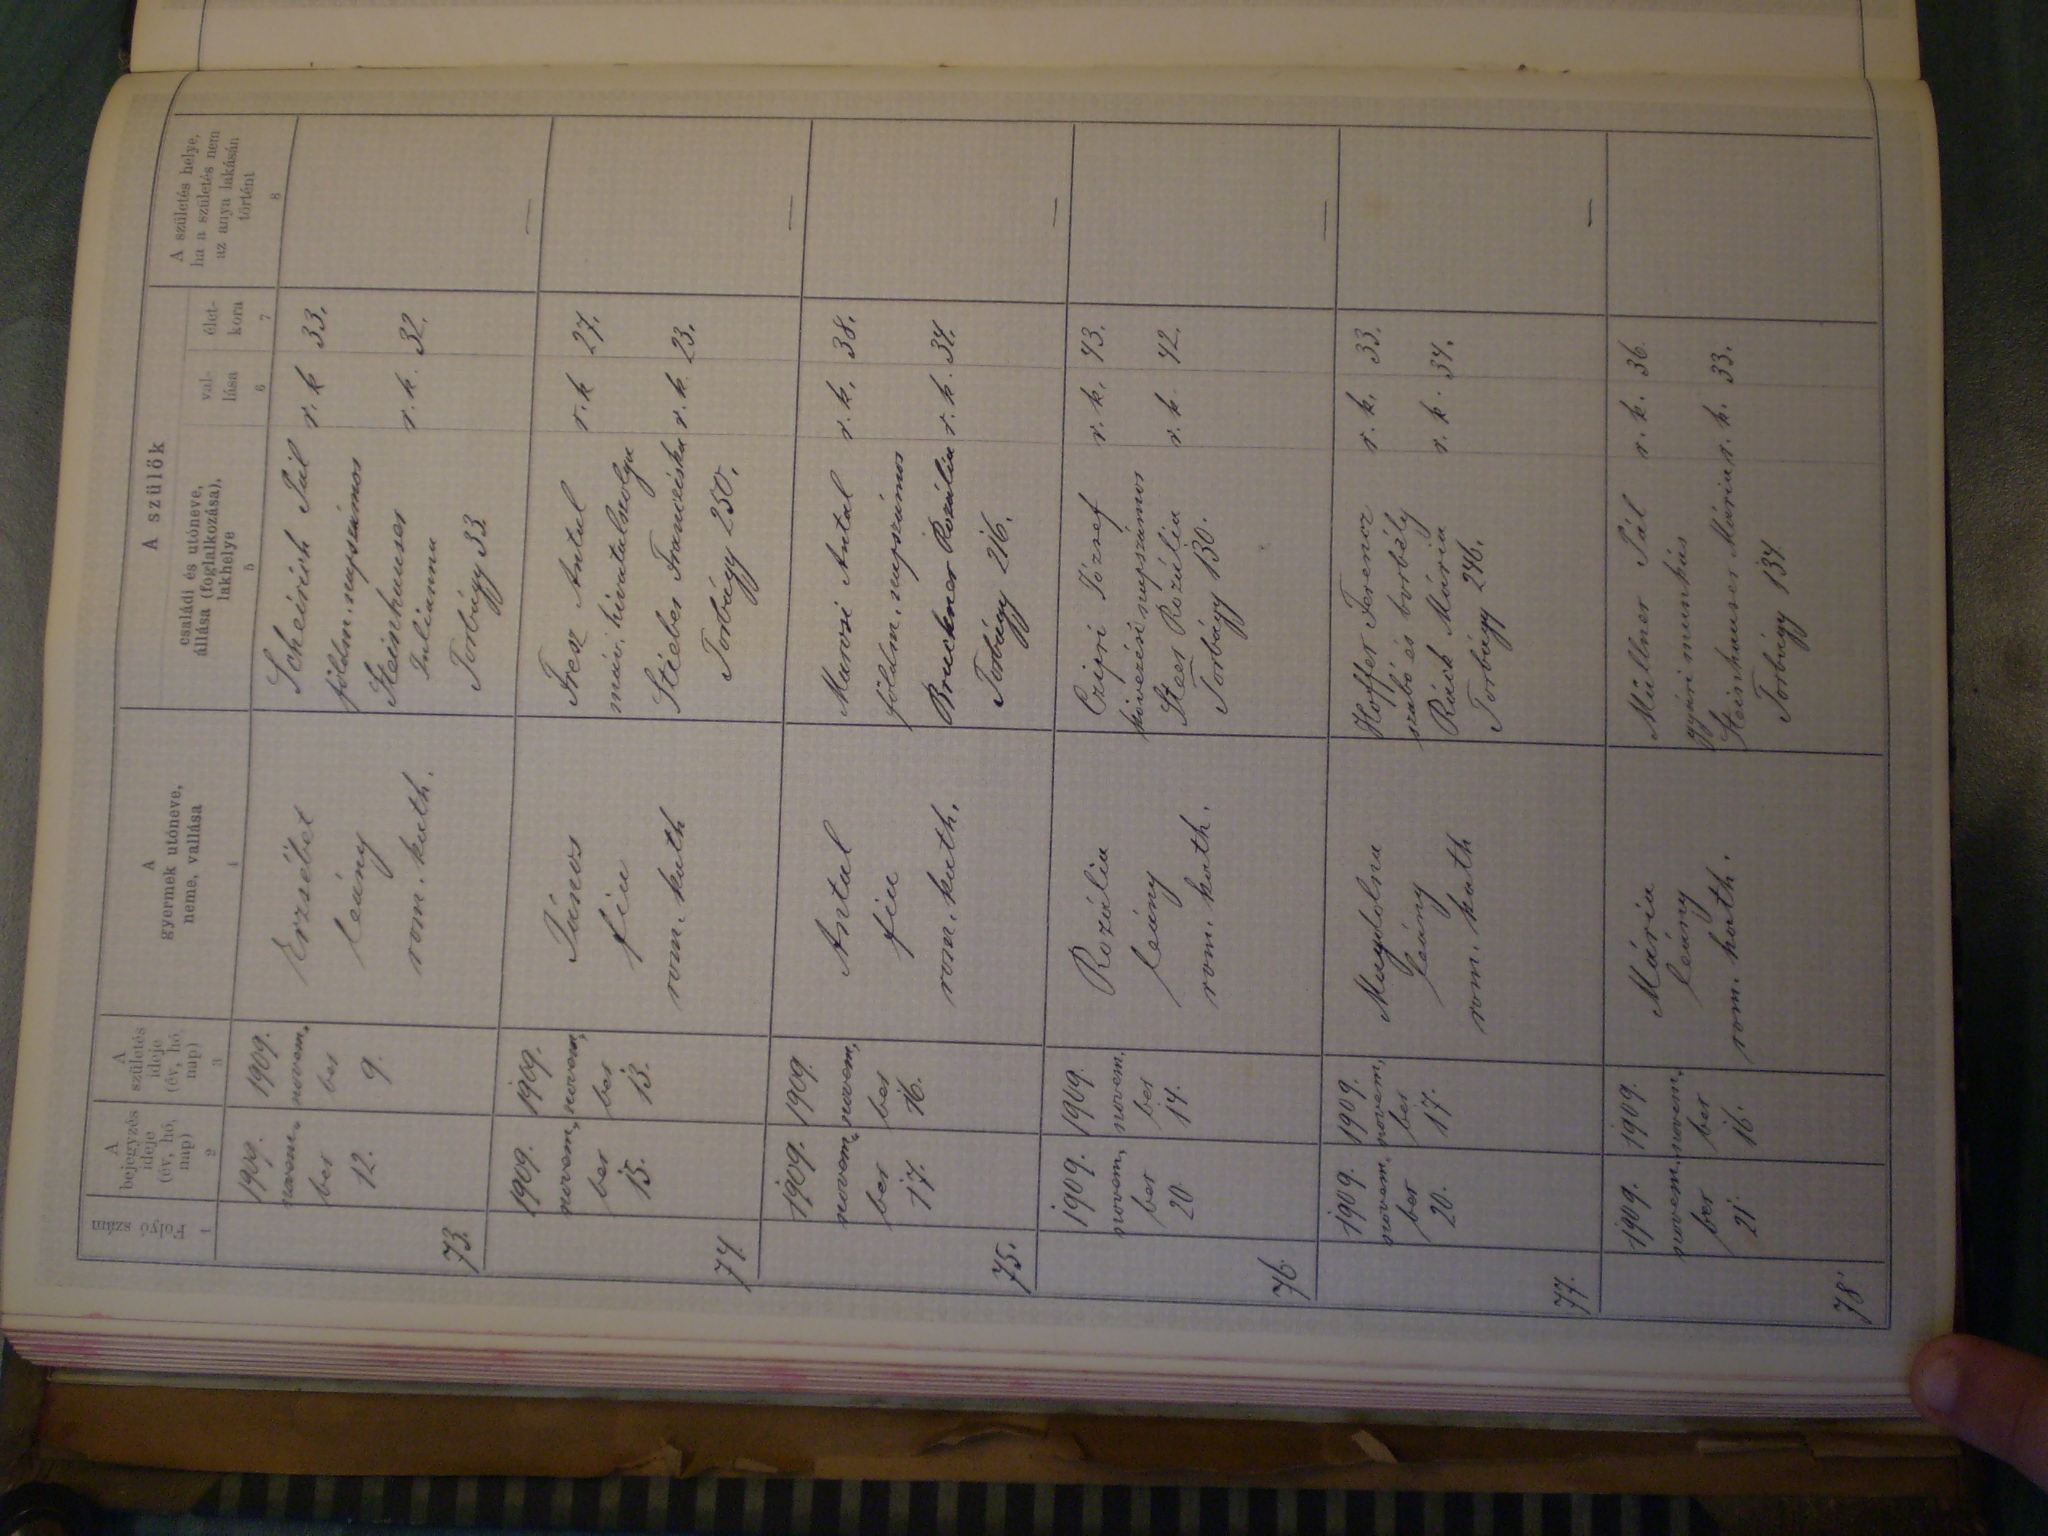 Folyó szám
1
A bejegyzés ideje (év, hó, nap)
2
A születés ideje (év, hó, nap)
3
A gyermek utóneve, neme, vallása
4
A szülők
családi és utóneve, állása (foglalkozása), lakhelye
5
vallása
6
életkora
7
A születés helye, ha a születés nem az anya lakásán történt
8
73.
1909.
novem.
ber
12.
1909.
novem.
ber
9.
Erzsébet
leány
rom. kath.
Scheirich Pál r. k 33.
földm. napszámos
Steinhauser r. k. 32.
Julianna
Torbágy 33.
74.
1909.
novem,
ber
15.
1909.
novem,
ber
13.
János
fiu
rom. kath
Fresz Antal r. k 27.
máv. hivatalszolga
Stieber Francziska r. k. 23.
Torbágy 250.
—
75.
1909.
novem,
ber
17.
1909.
novem,
ber
16.
Antal
fiu
rom. kath.
Marosi Antal r. k. 38.
földm. napszámos
Bruckner Rozália r. k. 34.
Torbágy 216.
—
76.
1909.
novem,
ber
20.
1909.
novem.
ber
14.
Rozália
leány
rom. kath.
Czipri József r. k. 43.
kövezési napszámos
Rozália r. k. 42.
Torbágy 130.
—
77.
1909.
novem,
ber
20.
1909.
novem,
ber
17.
Magdolna
leány
rom. kath
Hoffer Ferencz r. k. 33.
szabó és borbély
Rách Mária r. k. 34.
Torbágy 246.
—
78.
1909.
novem.
ber
21.
1909.
novem.
ber
16.
Mária
leány
rom. kath.
Müllner Pál r. k. 36.
gyári munkás
Steinhauser Mária r. k. 33.
Torbágy 134.
—